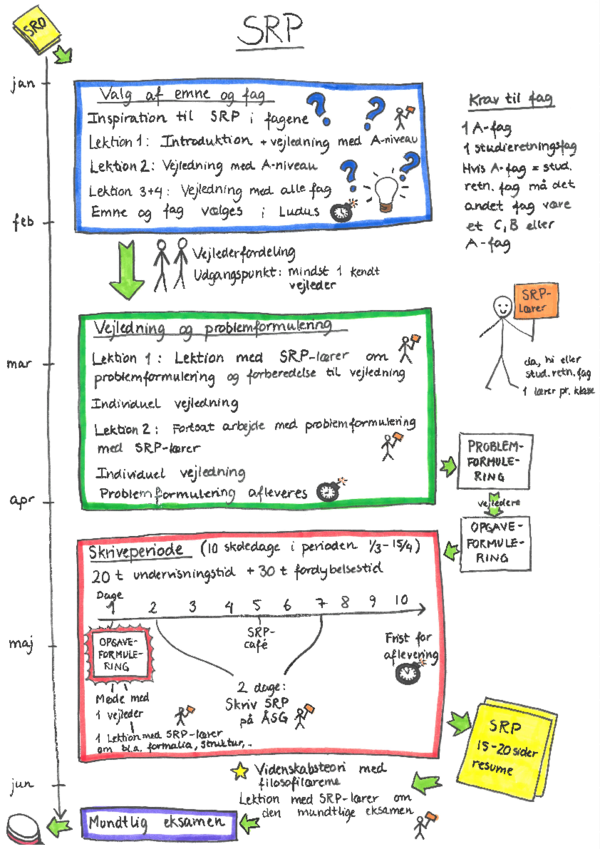 SRP
SRP
jan
feb
mar
apr
maj
jun
Valg af emne og fag
Inspiration til SRP i fagene
Lektion 1: Introduktion + vejledning med A-niveau
Lektion 2: Vejledning med A-niveau
Lektion 3+4: Vejledning med alle fag
Emne og fag vælges i Ludus
Krav til fag
1 A-fag
1 studieretningsfag
Hvis A-fag = stud.
retn. fag må det
andet fag være
et C, B eller
A-fag
Vejlederfordeling
Udgangspunkt: mindst 1 kendt
vejleder
SRP-
lærer
da, hi eller
stud.retn.fag
1 lærer pr. klasse
Vejledning og problemformulering
Lektion 1: Lektion med SRP-lærer om
problemformulering og forberedelse til vejledning
Individuel vejledning
Lektion 2: Fortsat arbejde med problemformulering
med SRP-lærer
Individuel vejledning
Problemformulering afleveres
PROBLEM-
FORMULE-
RING
vejledere
OPGAVE-
FORMULE-
RING
Skriveperiode (10 skoledage i perioden 1/3-15/4)
20 t undervisningstid + 30 t fordybelsestid
Dage
1 2 3 4 5 6 7 8 9 10
OPGAVE-
FORMULE-
RING
SRP-
café
Frist for
aflevering
Møde med
1 vejleder
2 dage:
Skriv SRP
på ÅSG
1 Lektion med SRP-lærer
om bl.a. formalia, struktur,..
SRP
15-20 sider
resume
Videnskabsteori med
filosofilærerne
Lektion med SRP-lærer om
den mundtlige eksamen
Mundtlig eksamen